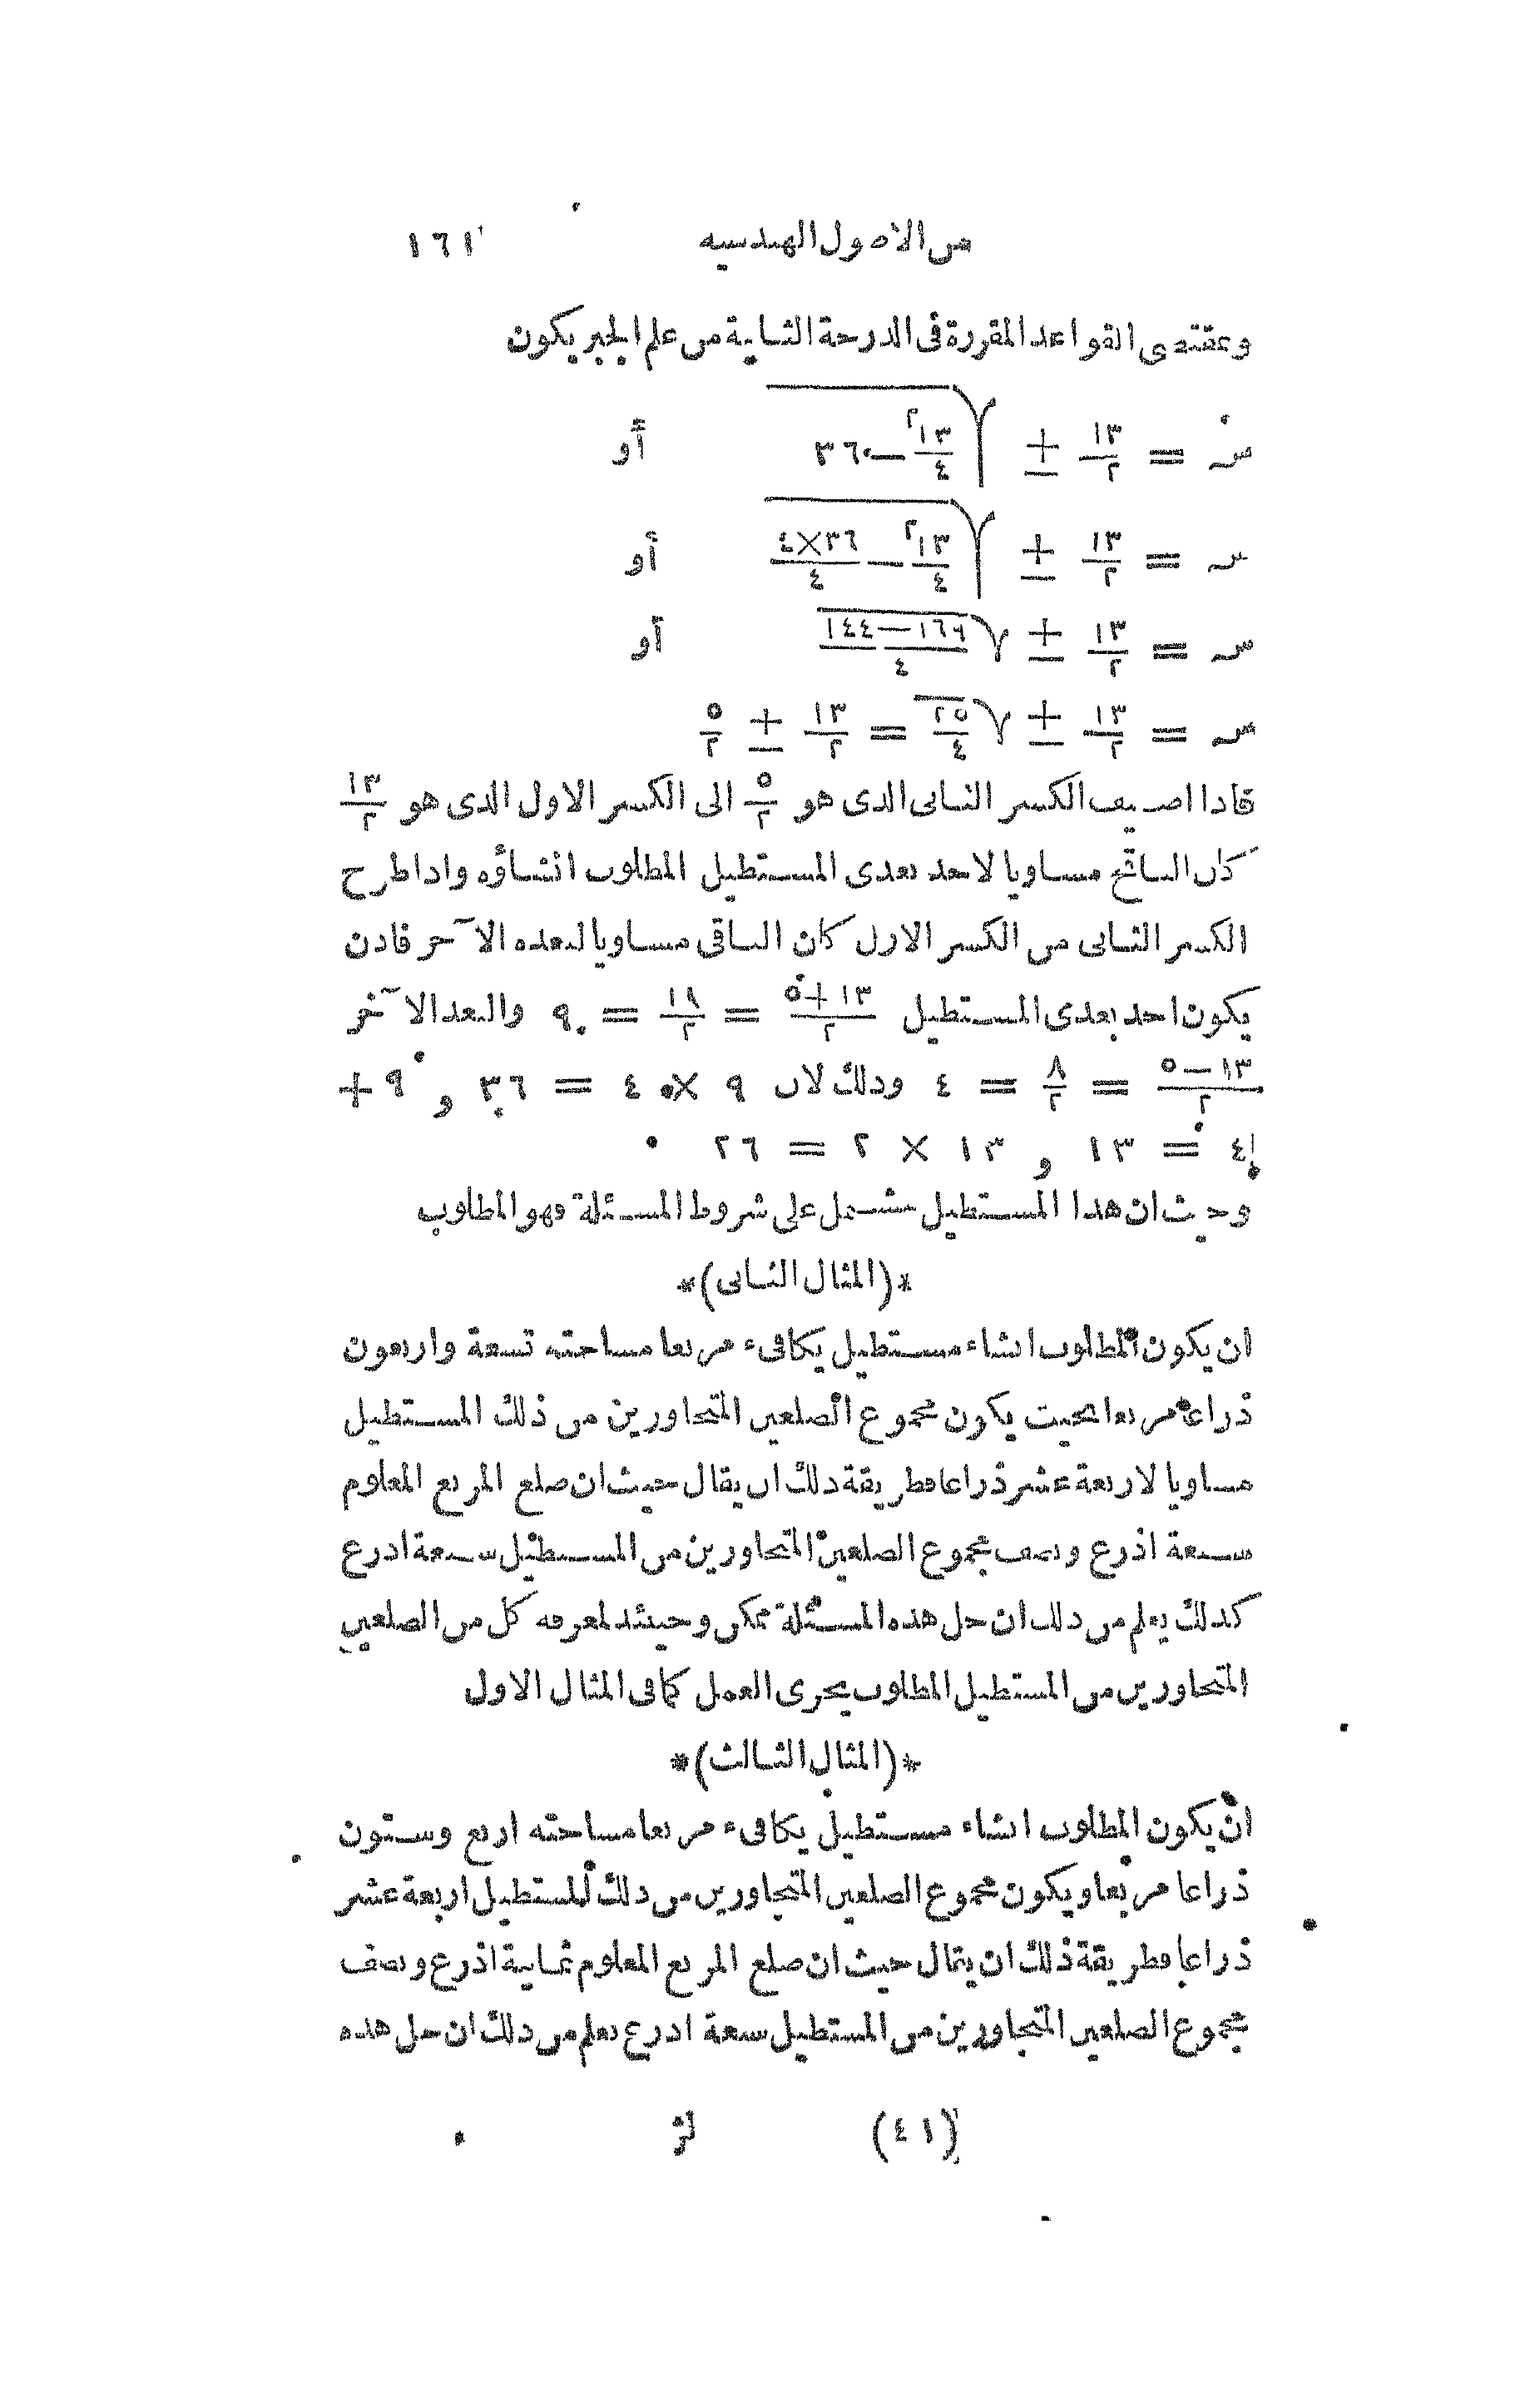 من الاصول الهندسيه ١٦١
وبمقتضى القواعد المقررة فى الدرجة الثانية من علم الجبر يكون
س = ١٣/٢ ± √(١٣^٢/٤ − ٣٦) أو
س = ١٣/٢ ± √(١٣^٢/٤ − ٣٦×٤/٤) أو
س = ١٣/٢ ± √((١٦٩ − ١٤٤)/٤) أو
س = ١٣/٢ ± √(٢٥/٤) = ١٣/٢ ± ٥/٢
فاذا اضيف الكسر الثانى الذى هو ٥/٢ الى الكسر الاول الذى هو ١٣/٢
كان الناتج مساويا لاحد بعدى المستطيل المطلوب انشاؤه واذا طرح
الكسر الثانى من الكسر الاول كان الباقى مساويا لبعده الآخر فاذن
يكون احد بعدى المستطيل (١٣+٥)/٢ = ١٨/٢ = ٩ والبعد الآخر
(١٣−٥)/٢ = ٨/٢ = ٤ وذلك لان ٩ × ٤ = ٣٦ و ٩ +
٤ = ١٣ و ١٣ × ٢ = ٢٦
وحيث ان هذا المستطيل مشتمل على شروط المسئلة فهو المطلوب
*(المثال الثانى)*
ان يكون المطلوب انشاء مستطيل يكافىء مربعا مساحته تسعة واربعون
ذراعا مربعا بحيث يكون مجموع الضلعين المتجاورين من ذلك المستطيل
مساويا لاربعة عشر ذراعا فطريقة ذلك ان يقال حيث ان ضلع المربع المعلوم
سبعة اذرع ونصف مجموع الضلعين المتجاورين من المستطيل سبعة اذرع
كذلك يعلم من ذلك ان حل هذه المسئلة ممكن وحينئذ لمعرفه كل من الضلعين
المتجاورين من المستطيل المطلوب يجرى العمل كما فى المثال الاول
*(المثال الثالث)*
ان يكون المطلوب انشاء مستطيل يكافىء مربعا مساحته اربع وستون
ذراعا مربعا ويكون مجموع الضلعين المتجاورين من ذلك المستطيل اربعة عشر
ذراعا فطريقة ذلك ان يقال حيث ان ضلع المربع المعلوم ثمانية اذرع ونصف
مجموع الضلعين المتجاورين من المستطيل سبعة اذرع يعلم من ذلك ان حل هذه
(٤١)